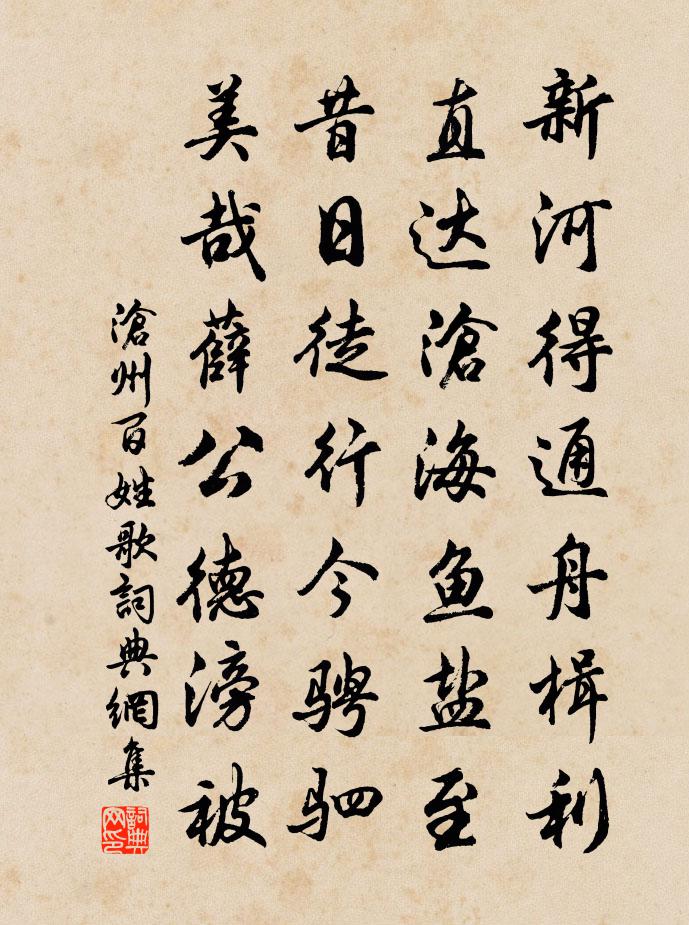 新河得通舟楫利
直达滄海鱼盐至
昔日徒行今骋驷
美哉薛公德滂被
滄州百姓歌詞典網集
詞典网印